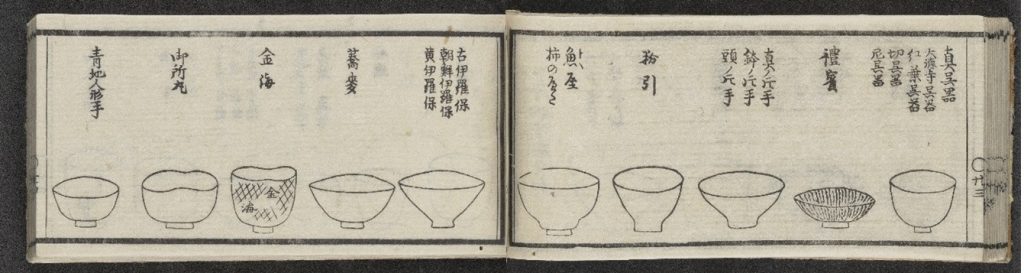 真呉器
大德寺呉器
仁葉呉器
切呉器
尼呉器
禮賓
真ノ片手
鉢ノ片手
頭ノ片手
粉引
魚屋
トヽ
柿の
古伊羅保
朝鮮伊羅保
黄伊羅保
蕎麥
金海
金
海
御所丸
青地人形手
〇廿三